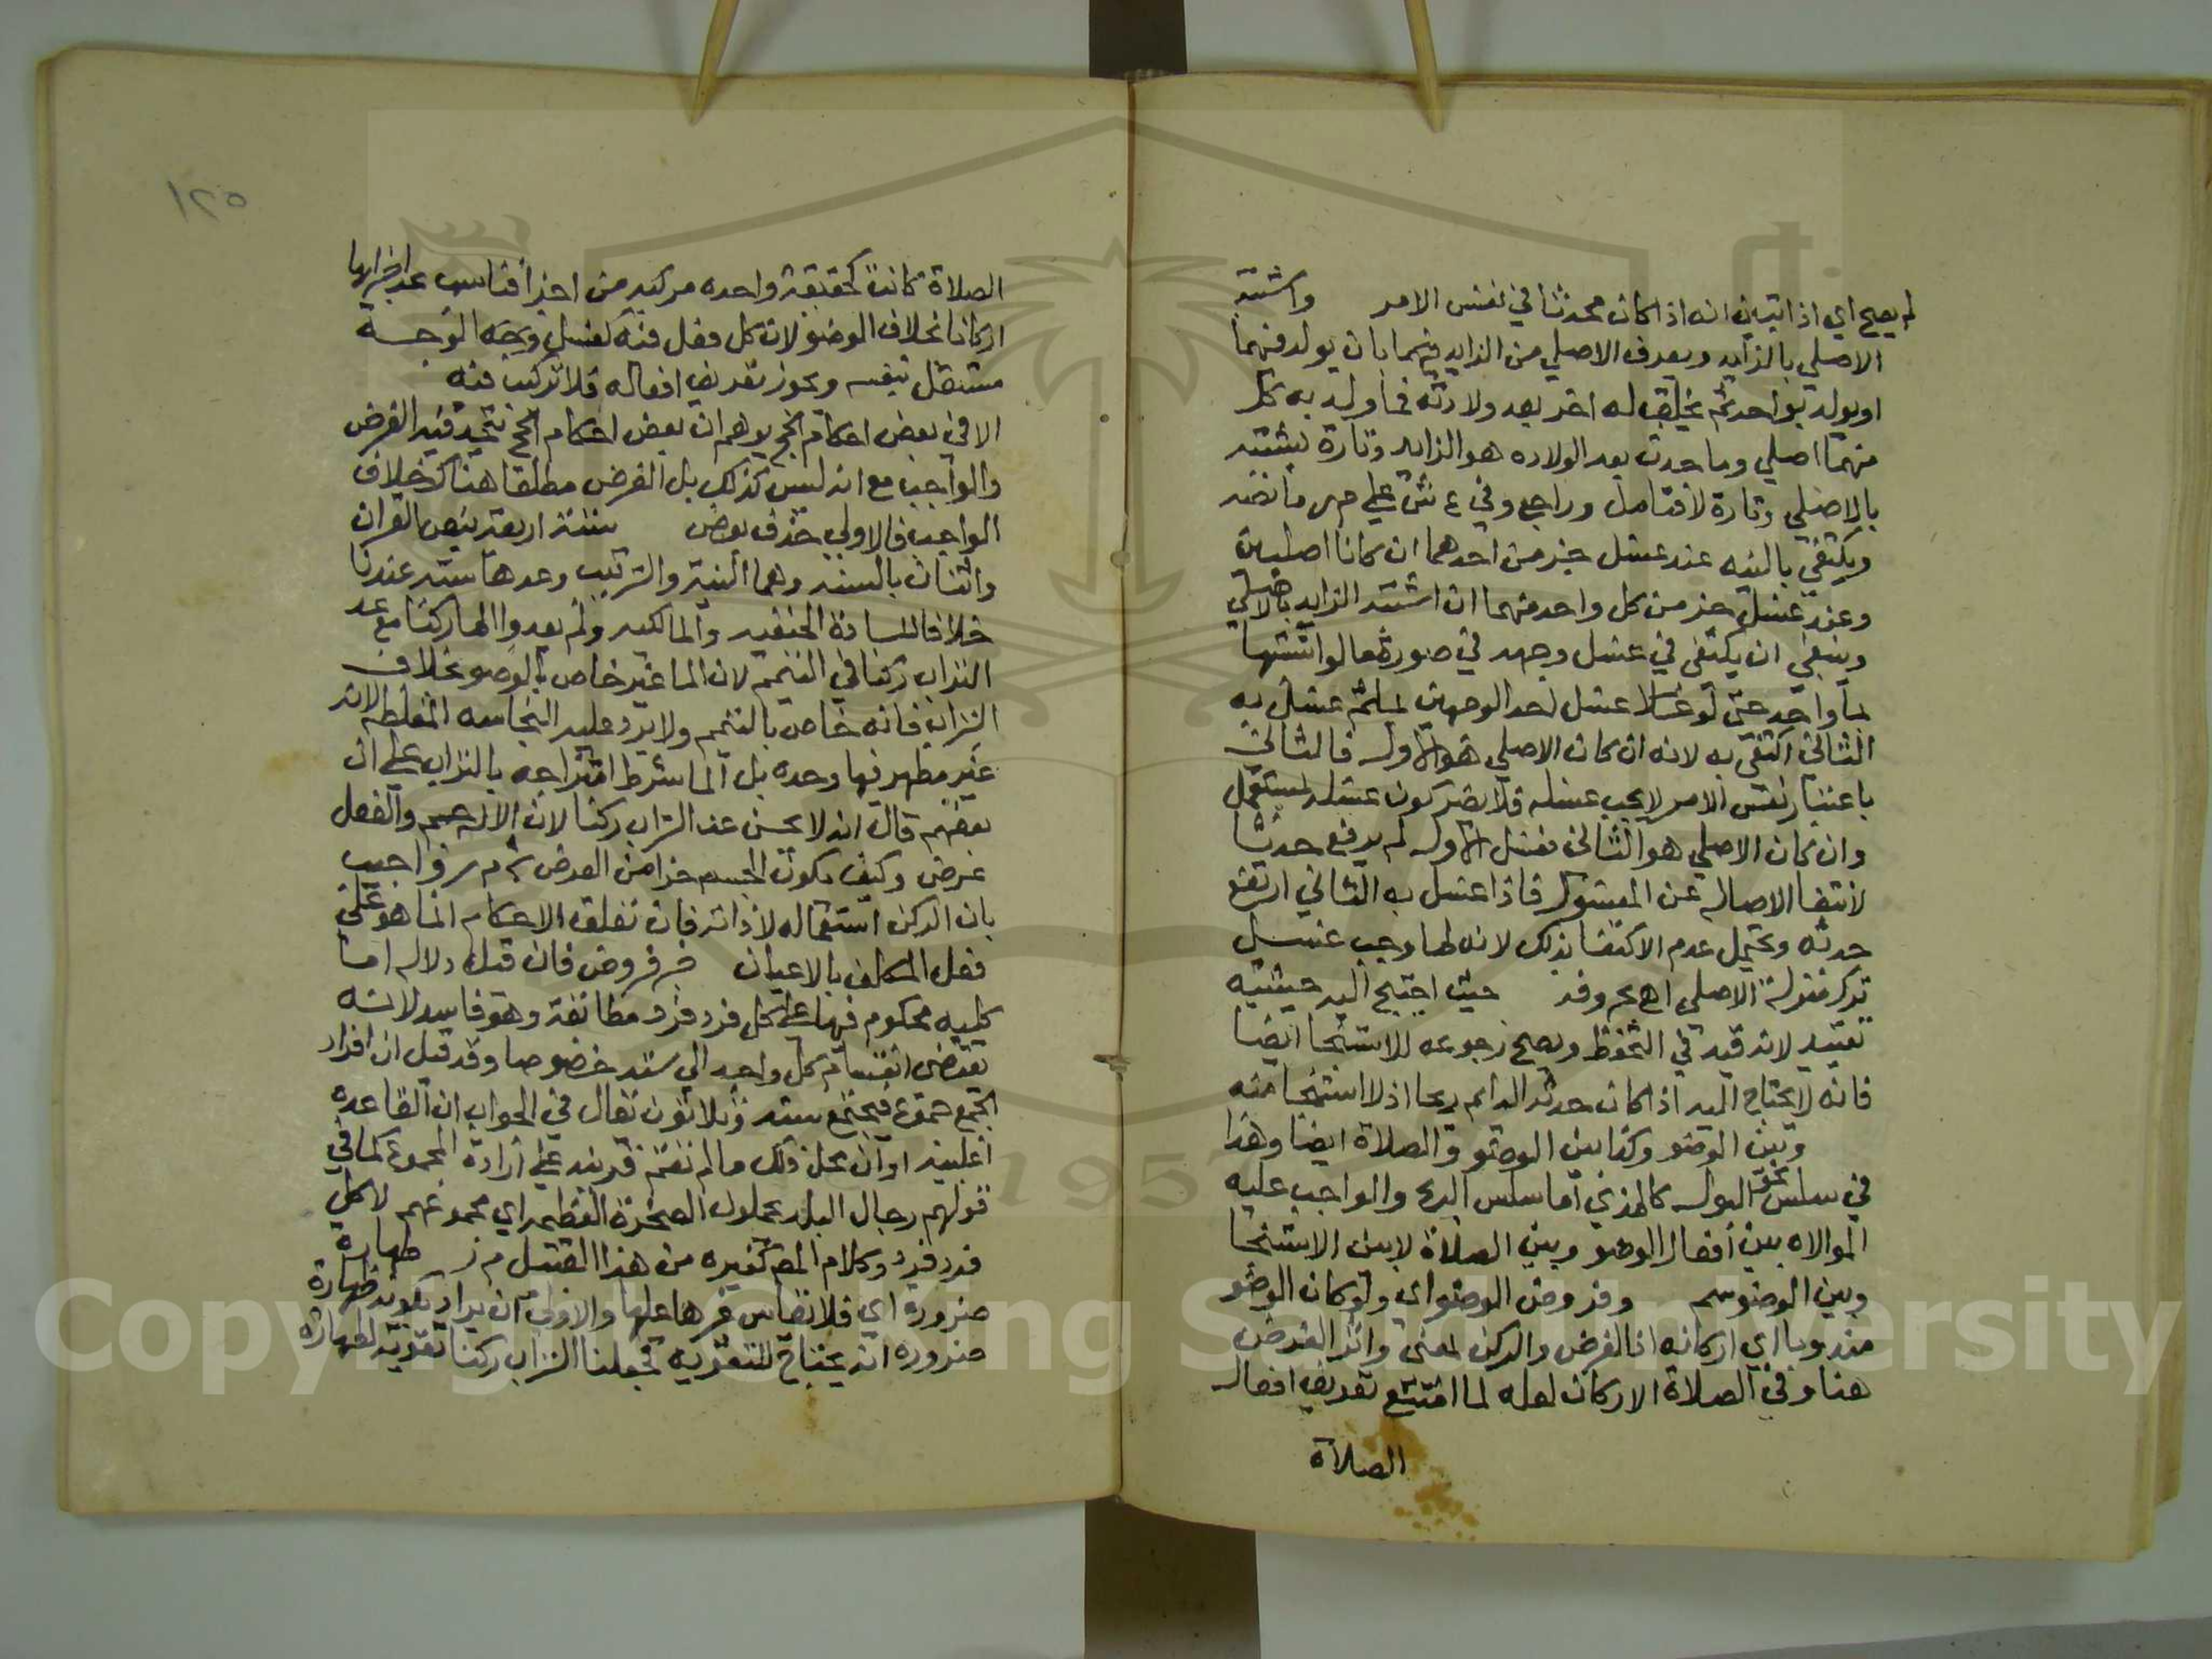 لم يصح اي اذا تبين انه اذا كان محدثا في نفس الامر واشتبه
الاصلي بالزايد ويعرف الاصلي من الزايد فيهما بان يولد فيهما
او يولد بواحد ثم يخلق له اخر بعد ولادته فما ولد به كل
منهما اصلي وما حدث بعد الولاده هو الزايد وتارة يشتبه
بالاصلي وتارة لا فتامل وراجع وفي ع ش علي م ر ما نصه
ويكتفي بالنيه عند غسل جزء من احدهما ان كانا اصليين
وعند غسل جزء من كل واحد منهما ان اشتبه الزايد بالاصلي
وينبغي ان يكتفي في غسل وجهه في صورة ما لو اشتبها
بماء واحد حتي لو غسلا غسل احد الوجهين بماء ثم غسل به
الثاني اكتفي به لانه ان كان الاصلي هو الاول فالثاني
باعتبار نفس الامر لا يجب غسله فلا يضر كون غسله بمستعمل
وان كان الاصلي هو الثاني فغسل الاول لم يرفع حدثا
لانتفا الاصاله عن المغسول فاذا غسل به الثاني ارتفع
حدثه ويحتمل عدم الاكتفا بذلك لانه لما وجب غسل
نزل منزلة الاصلي اه بحروفه حيث احتيج اليه حيثيه
تقييد لانه قيد في التحفظ ويصح رجوعه للاستنجا ايضا
فانه لا يحتاج اليه اذا كان حدثه الدايم ريحا اذ لا استنجا منه
وبين الوضو وكذا بين الوضو والصلاة ايضا وهذا
في سلس نحو البول كالمذي اما سلس الريح والواجب عليه
الموالاه بين افعال الوضو وبين الصلاة لا بين الاستنجا
وبين الوضو سم وفروض الوضو اي ولو كان الوضو
مندوبا اي اركانه اذ الفرض والركن بمعني واثر الفرض
هنا وفي الصلاة الاركان لعله لما امتنع تفريق افعال
الصلاة
١٢٥
الصلاة كانت كحقيقة واحده مركبه من اجزا فناسب عد اجزايها
اركانا بخلاف الوضو لان كل فعل منه كغسل وجه الوجه
مستقل بنفسه ويجوز تفريق افعاله فلا تركيب فيه
الا في بعض احكام الحج يوهم ان بعض احكام الحج يتحد فيه الفرض
والواجب مع انه ليس كذلك بل الفرض مطلقا هناك خلاف
الواجب فالاولي حذف بعض ستة اربعة بنص القران
واثنان بالسنه وهما النية والترتيب وعدها سته عندنا
خلافا للسادة الحنفيه والمالكيه ولم يعدوا الما ركنا مع عد
التراب ركنا في التيمم لان الما غير خاص بالوضو بخلاف
التراب فانه خاص بالتيمم ولا يرد عليه النجاسه المغلظه لانه
غير مطهر فيها وحده بل الما بشرط امتزاجه بالتراب علي ان
بعضهم قال انه لا يحسن عد التراب ركنا لان الاله جسم والفعل
عرض وكيف يكون الجسم جزا من العرض م ر واجيب
بان الركن استعماله لا ذاته فان تعلق الاحكام انما هو علي
فعل المكلف بالاعيان فروض فان قيل دلالة العام
كليه محكوم فيها علي كل فرد فرد مطابقة وهو فاسد لانه
يقتضي انقسام كل واحد الي سته خصوصا وقد قيل ان افراد
الجمع جموع فيجتمع سته وثلاثون نقال في الجواب ان القاعده
اغلبية او ان محل ذلك ما لم تقم قرينه علي ارادة المجموع كما في
قولهم رجال البلد يحملون الصخرة العظيمه اي مجموعهم لا كل
فرد فرد وكلام المص كغيره من هذا القبيل م ر طهارة
ضرورة اي فلا تقاس غيرها عليها والاولي ان يراد بكونه طهارة
ضروره انه يحتاج للتقويه فجعلنا التراب ركنا تقوية لطهارة
Copyright © King Saud University
1957